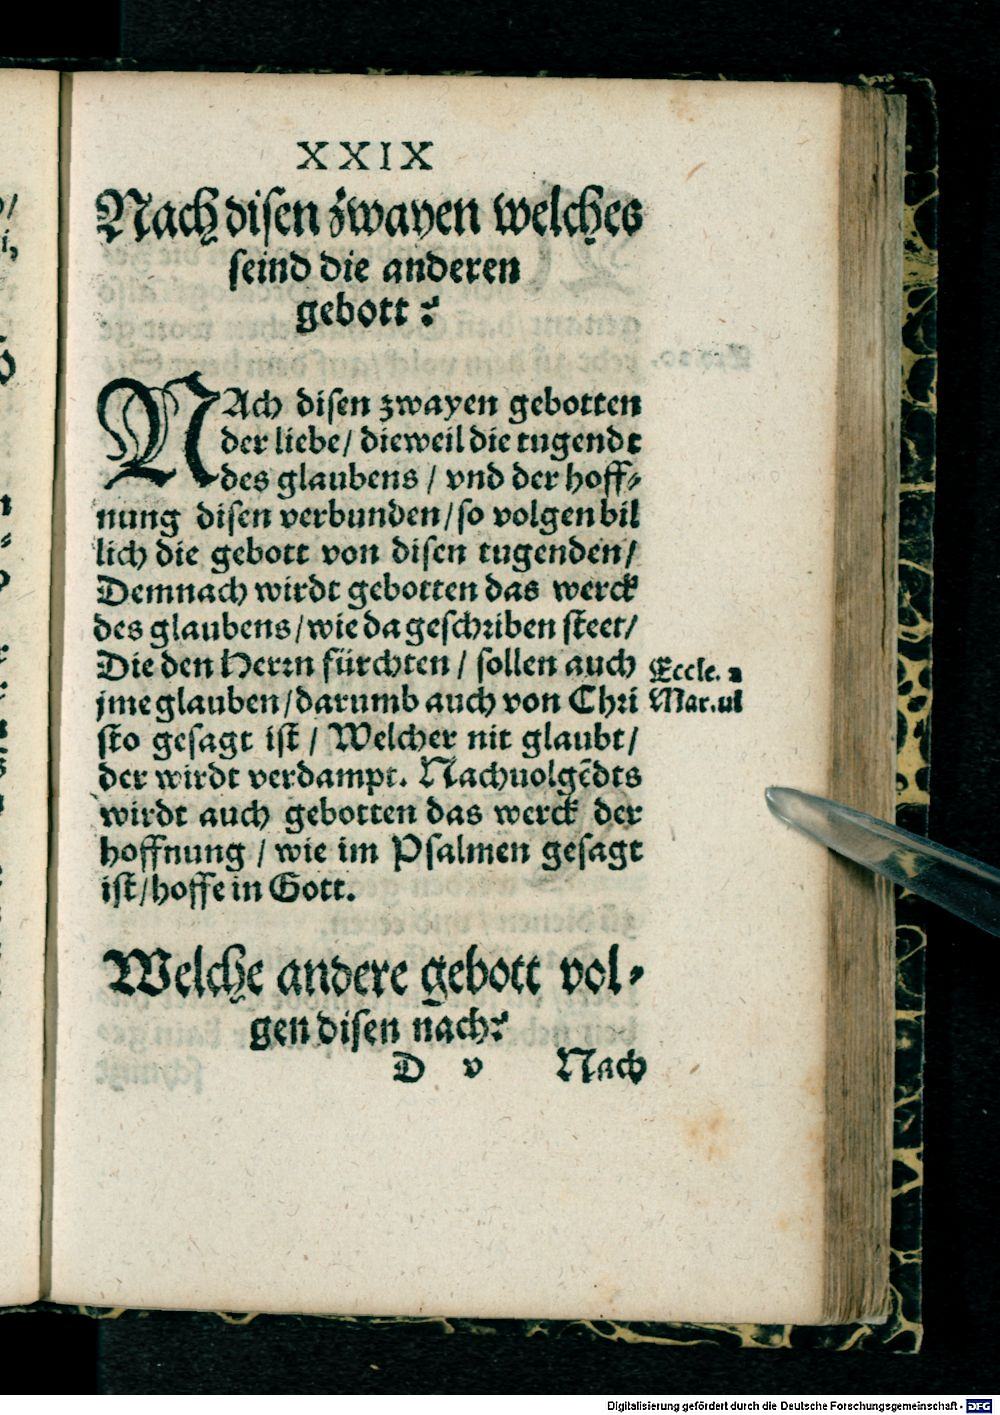 XXIX
Nach disen zwayen welches
seind die anderen
gebott?
NAch disen zwayen gebotten
der liebe/ dieweil die tugendt
des glaubens / vnd der hoff⸗
nung disen verbunden/so volgen bil
lich die gebott von disen tugenden/
Demnach wirdt gebotten das werck
des glaubens/wie da geschriben steet/
Die den Herrn fürchten / sollen auch
jme glauben/darumb auch von Chri
sto gesagt ist / Welcher nit glaubt/
der wirdt verdampt. Nachuolgēdts
wirdt auch gebotten das werck der
hoffnung / wie im Psalmen gesagt
ist/hoffe in Gott.
Eccle. 2
Mar.ul
Welche andere gebott vol⸗
gen disen nach?
D v Nach
Digitalisierung gefördert durch die Deutsche Forschungsgemeinschaft - DFG